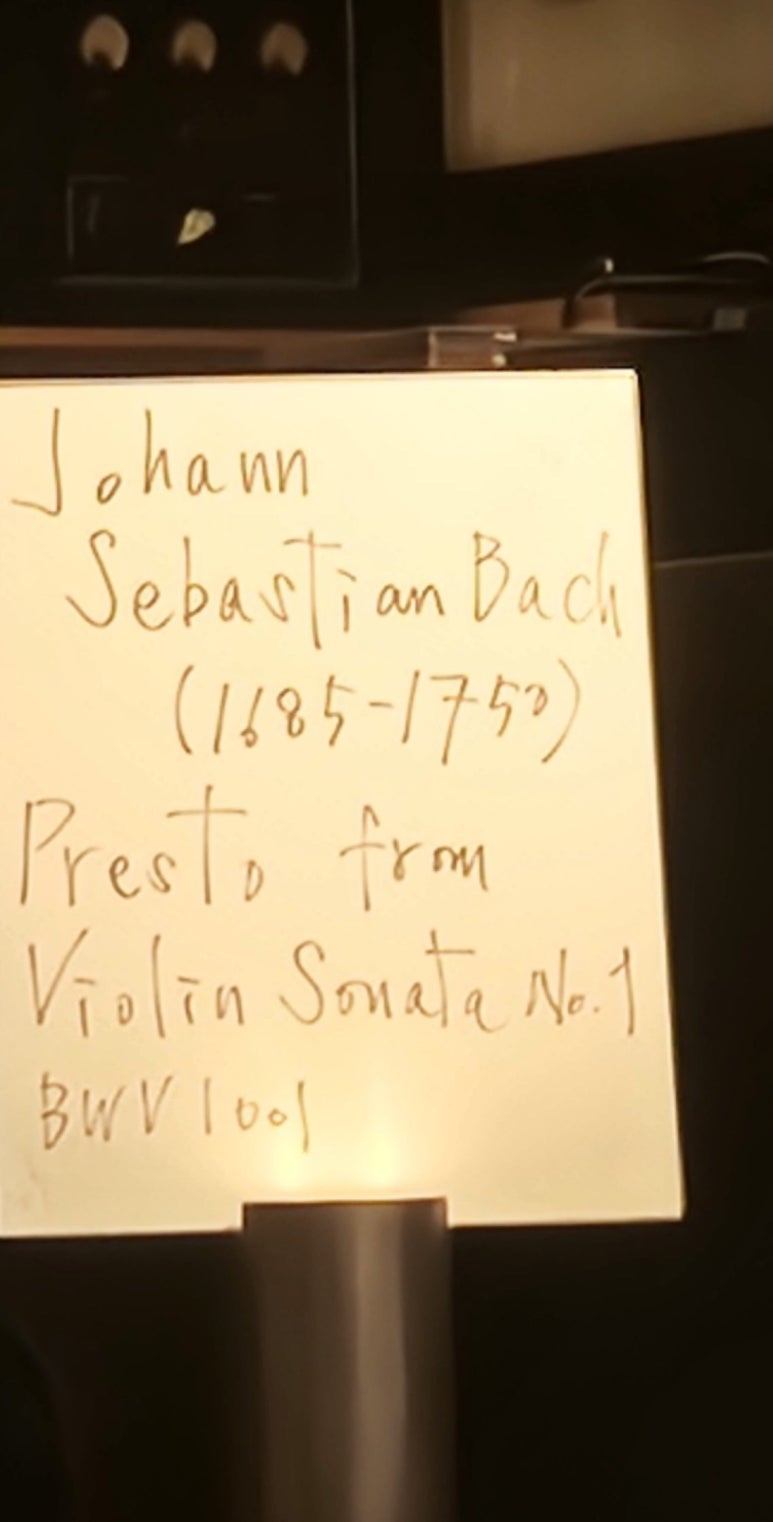 Johann
Sebastian Bach
(1685-1750)
Presto from
Violin Sonata No.1
BWV 1001